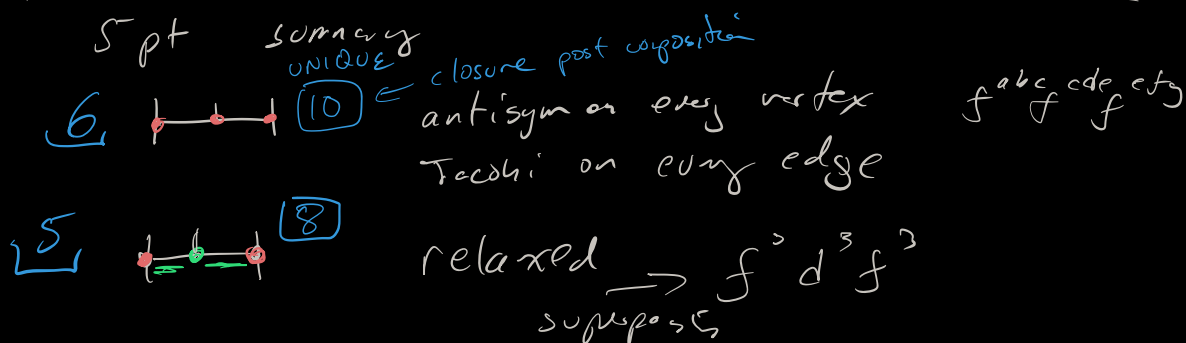 5 pt summary
UNIQUE
10 ← closure post composition
6
antisym on every vertex f^{abc} f^{cde} f^{efg}
Jacobi on every edge
5
8
relaxed → f^3 d^3 f^3